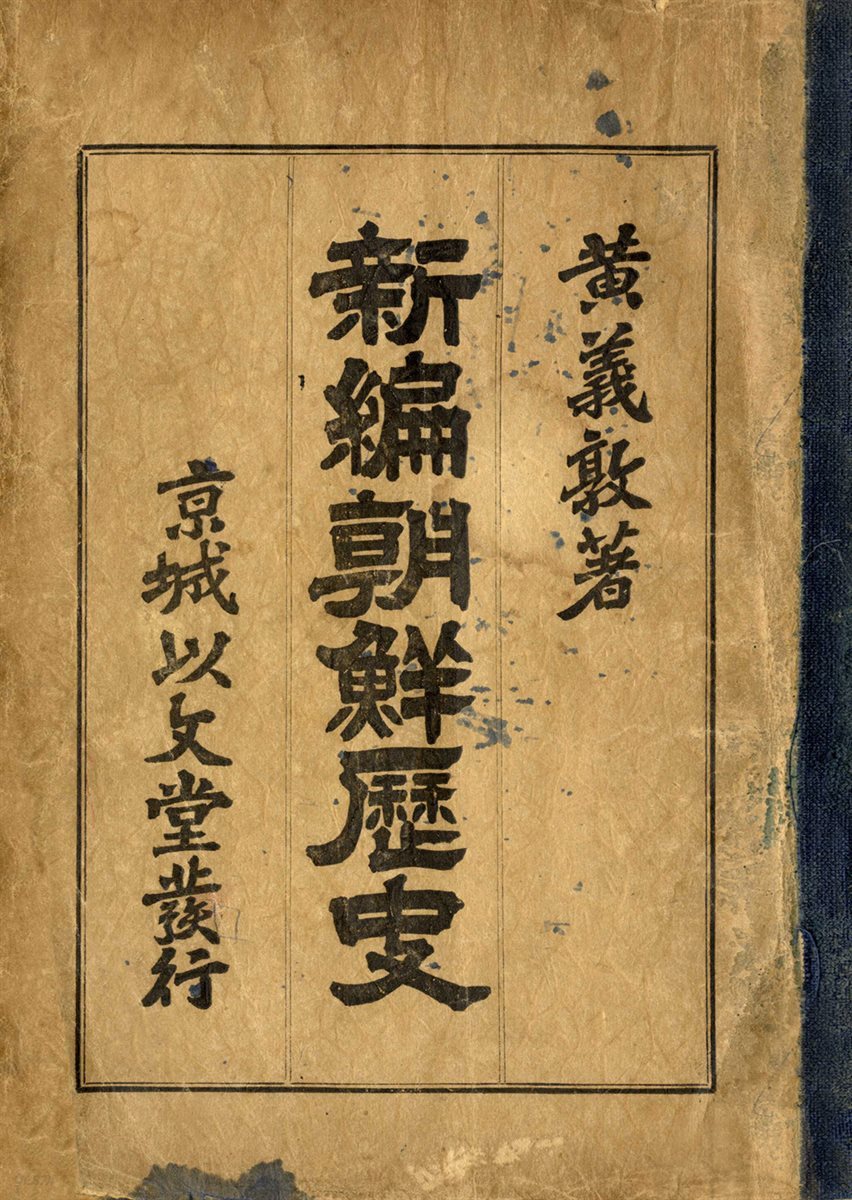 黃義敦著
新編朝鮮歷史
京城以文堂發行